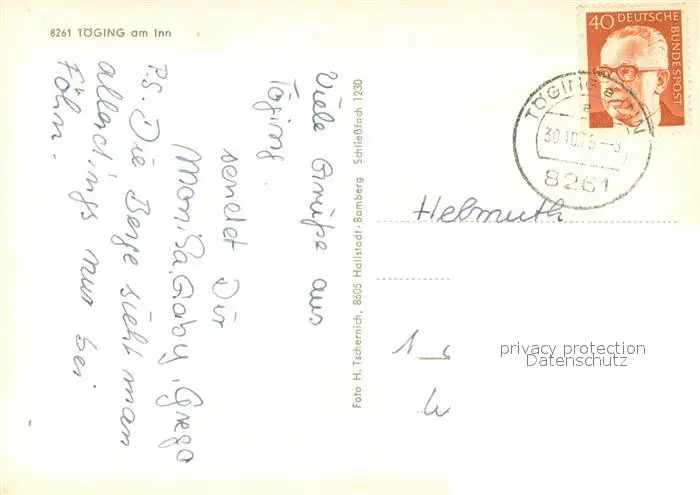 8261 TÖGING am Inn
Viele Grüße aus
Töging.
sendet Dir
Monika, Gaby, Grega
P.S. Die Berge sieht man
allerdings nur bei
Föhn.
Foto H. Tschernich, 8605 Hallstadt-Bamberg Schließfach 1230
40 DEUTSCHE
BUNDESPOST
TÖGING a INN
a
30.10.75-8
8261
Helmuth
1
privacy protection
Datenschutz